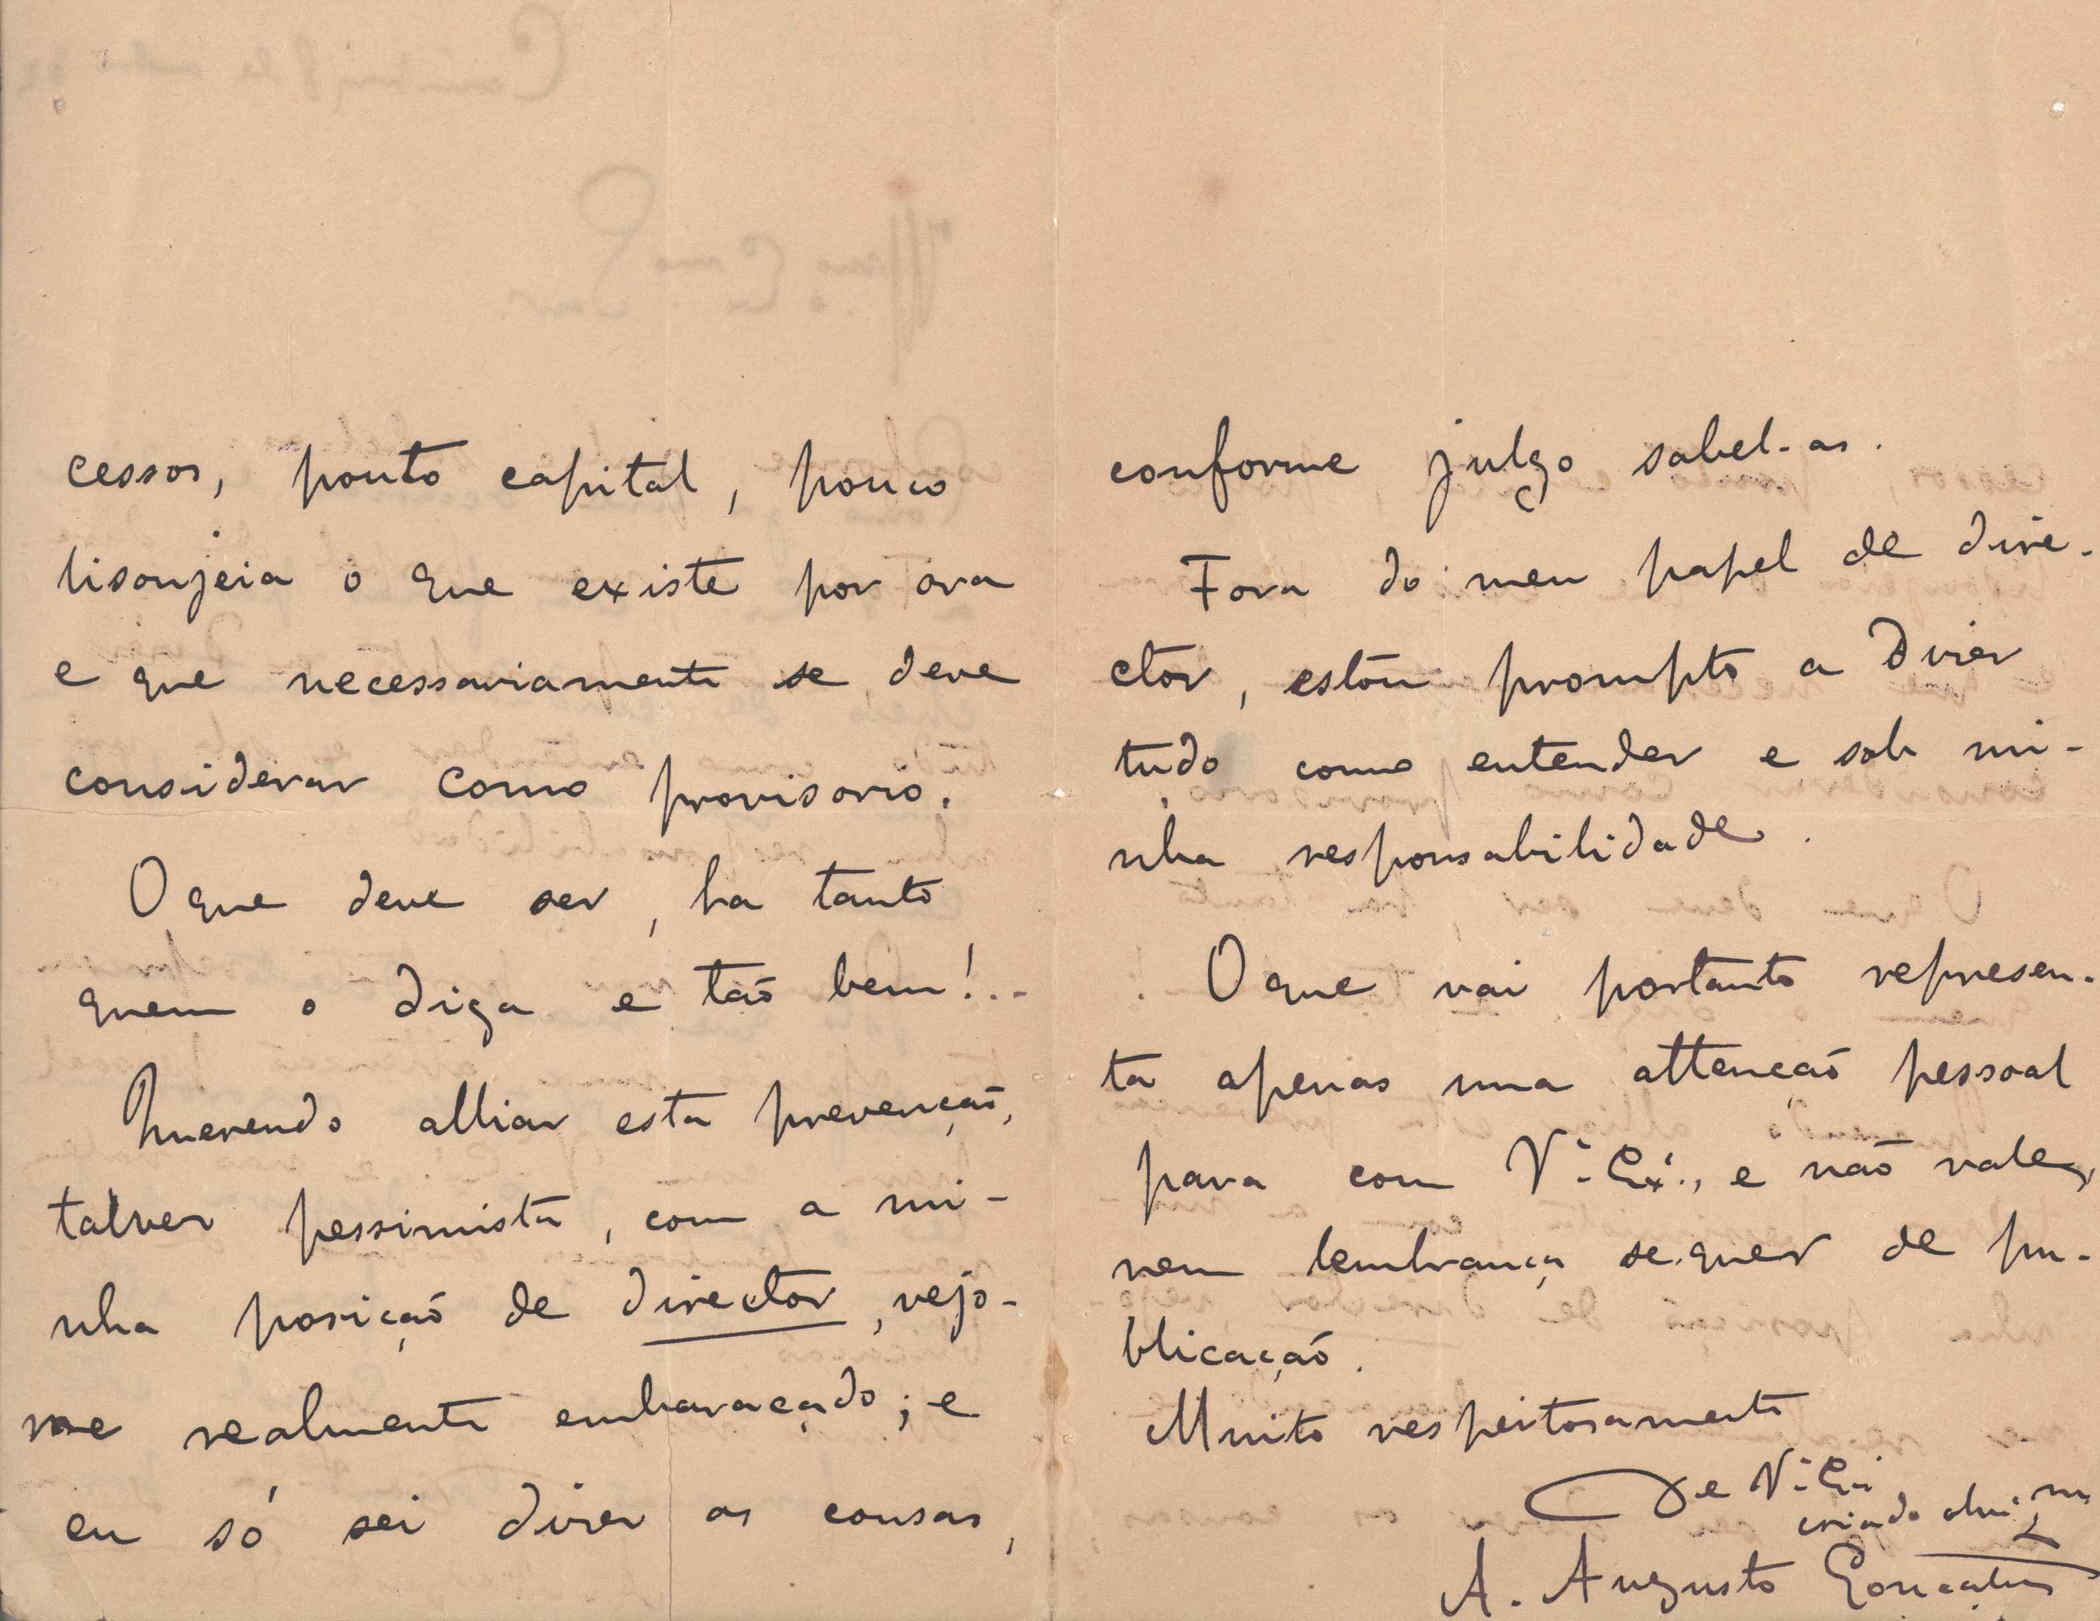 cessos, ponto capital, pouco
lisonjeia o que existe por ora
e que necessariamente se deve
considerar como provisorio.
O que deve ser, ha tanto
quem o diga e tão bem!...
Querendo alliar esta prevenção,
talvez pessimista, com a mi-
nha posição de director, vejo-
me realmente embaraçado; e
eu só sei dizer as cousas,
conforme julgo sabel-as.
Fora do meu papel de dire-
ctor, estou prompto a dizer
tudo como entender e sob mi-
nha responsabilidade.
O que vai portanto represen-
ta apenas uma attenção pessoal
para com V.ª Ex.ª, e não vale,
nem lembrança sequer de pu-
blicação.
Muito respeitosamente
De V.ª Ex.ª
criado
A. Augusto Gonçalves